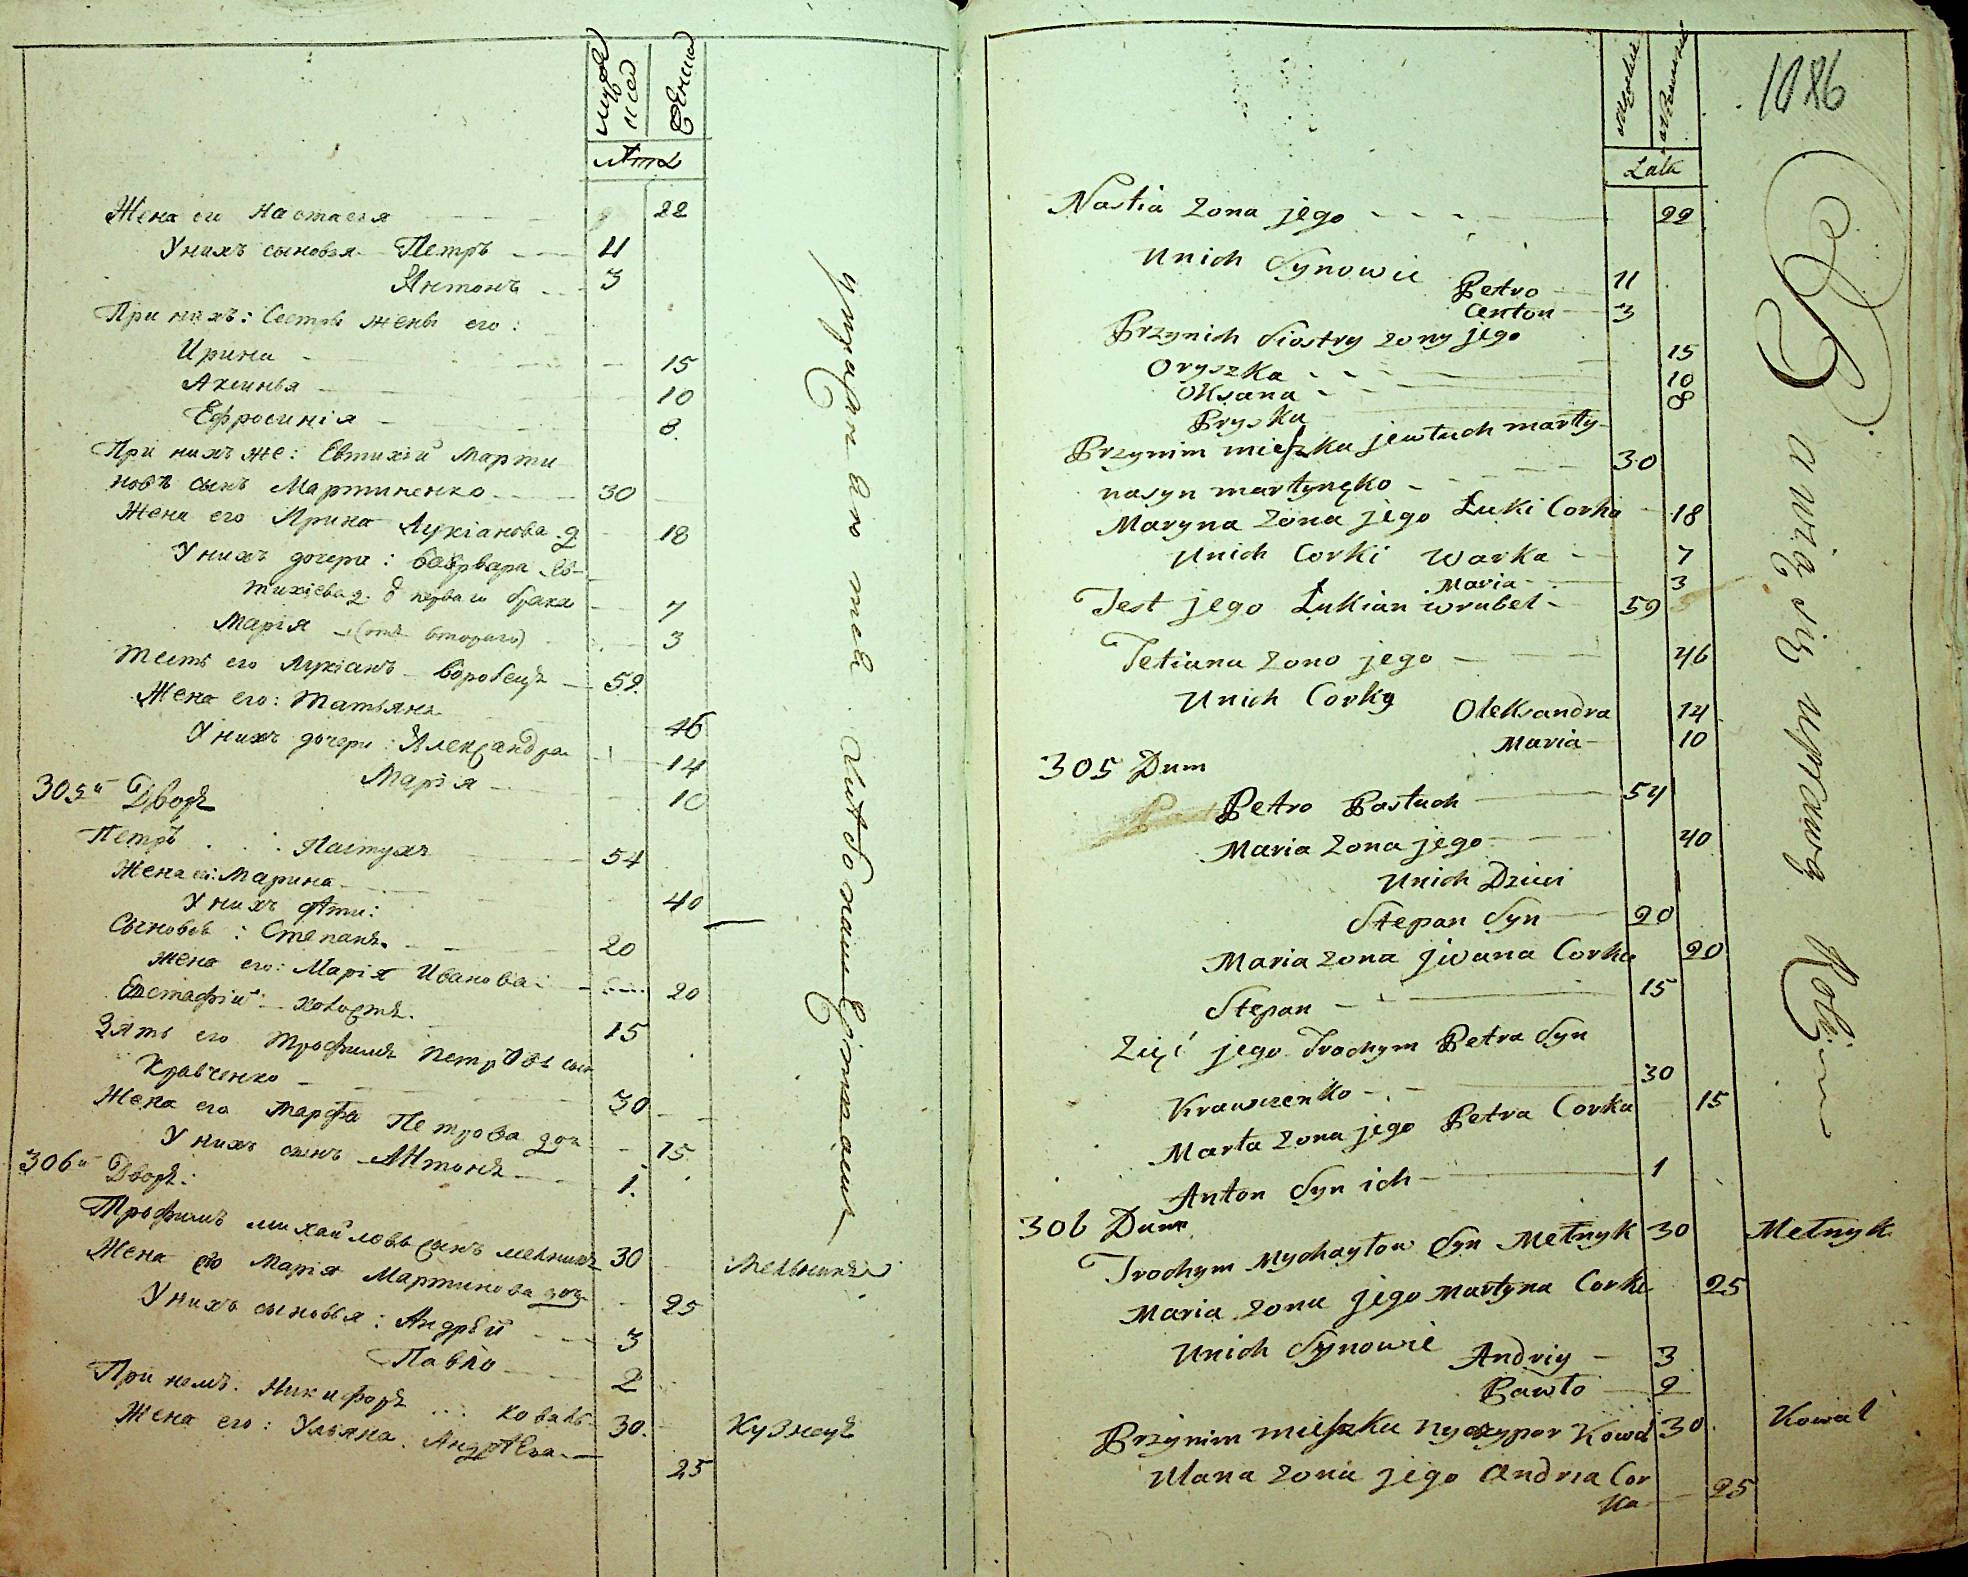 Мужес
Женск
Лѣта
Жена ег Настасея 22
У нихъ сыновья Петръ 11
Антонъ 3
При нихъ: Сестры жены его:
Ирина 15
Аксинья 10
Ефросинія 8.
При нихъ же: Евтихій Марти
новъ сынъ Мартиненко 30
Жена его Ирина Лукіанова д. 18
У нихъ дочери: Варвара Ев-
тихіева д. 7
Марія (отъ втораго) 3
Тесть его Лукіанъ Воробецъ 59.
Жена его: Татьяна 46
У нихъ дочери: Александра 14
Марія 10
305й Дворъ
Петръ Пастухъ 54
Жена ег: Марина 40
У нихъ дѣти:
Сыновья: Степанъ 20
жена его: Марія Иванова 20
Евстафій холостъ. 15
Зять его Трофимъ Петровъ сын
Кравченко 30
Жена его Марфа Петрова доч 15
У нихъ сынъ Антонъ 1.
306й Дворъ:
Трофимъ Михайловъ сынъ мельникъ 30 Мельникъ
Жена его Марія Мартинова доч 25
У нихъ сыновья: Андрѣй 3
Павло 2
При немъ: Никифоръ Коваль 30. Кузнецъ
Жена его: Ульяна Андрѣева 25
1086
Męskie
Lata
Nastia zona jego 22
Unich Synowie Petro 11
Anton 3
Przynich Siostry zony jego
Oryszka 15
Oksana 10
Pryska 8
Przynim mieszka jewtuch marty-
nasyn martynęko 30
Maryna zona jego Łuki Corka 18
Unich Corki Warka 7
Maria 3
Test jego Łukian wrubel 59
Tetiana zono jego 46
Unich Corky Oleksandra 14
Maria 10
305 Dum
Petro Pastuch 54
Maria zona jego 40
Unich Dzieci
Stepan Syn 20
Maria zona jwana Corka 20
Stepan 15
Zięć jego Trochym Petra Syn
Krawczenko 30
Marta zona jego Petra Corka 15
Anton Syn ich 1
306 Dum
Trochym Mychayłow Syn Mełnyk 30 Mełnyk
Maria zona jego Martyna Corka 25
Unich Synowie Andriy 3
Pawło 2
Przynim mieszka Nyczypor Kowal 30 Kowal
Ulana zona jego Andria Cor
ka 25